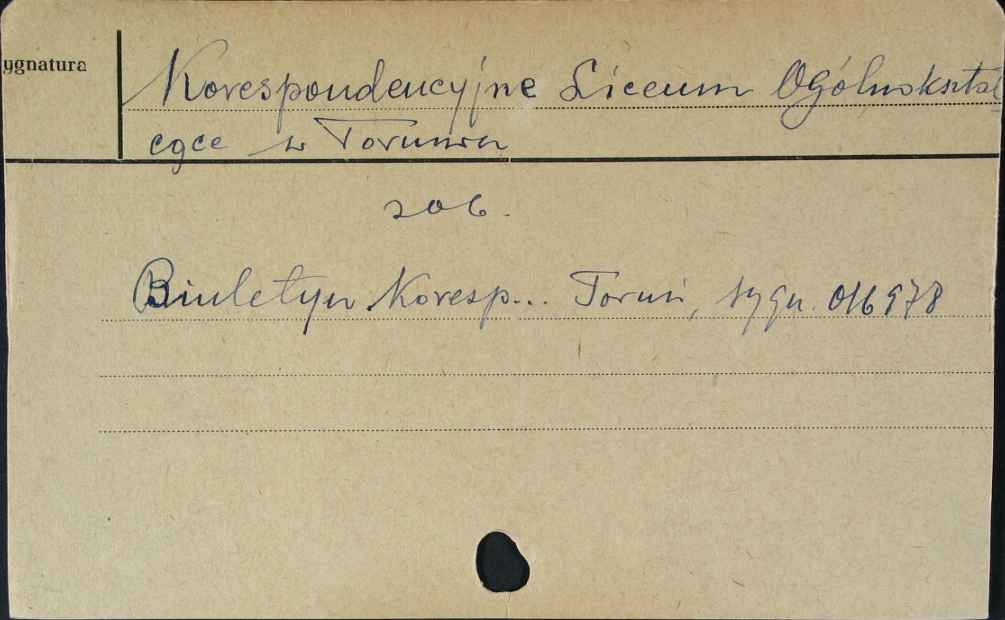 ygnatura
Korespondencyjne Liceum Ogólnokształ
cące w Toruniu
zob.
Biuletyn Koresp... Toruń, sygn. 016978